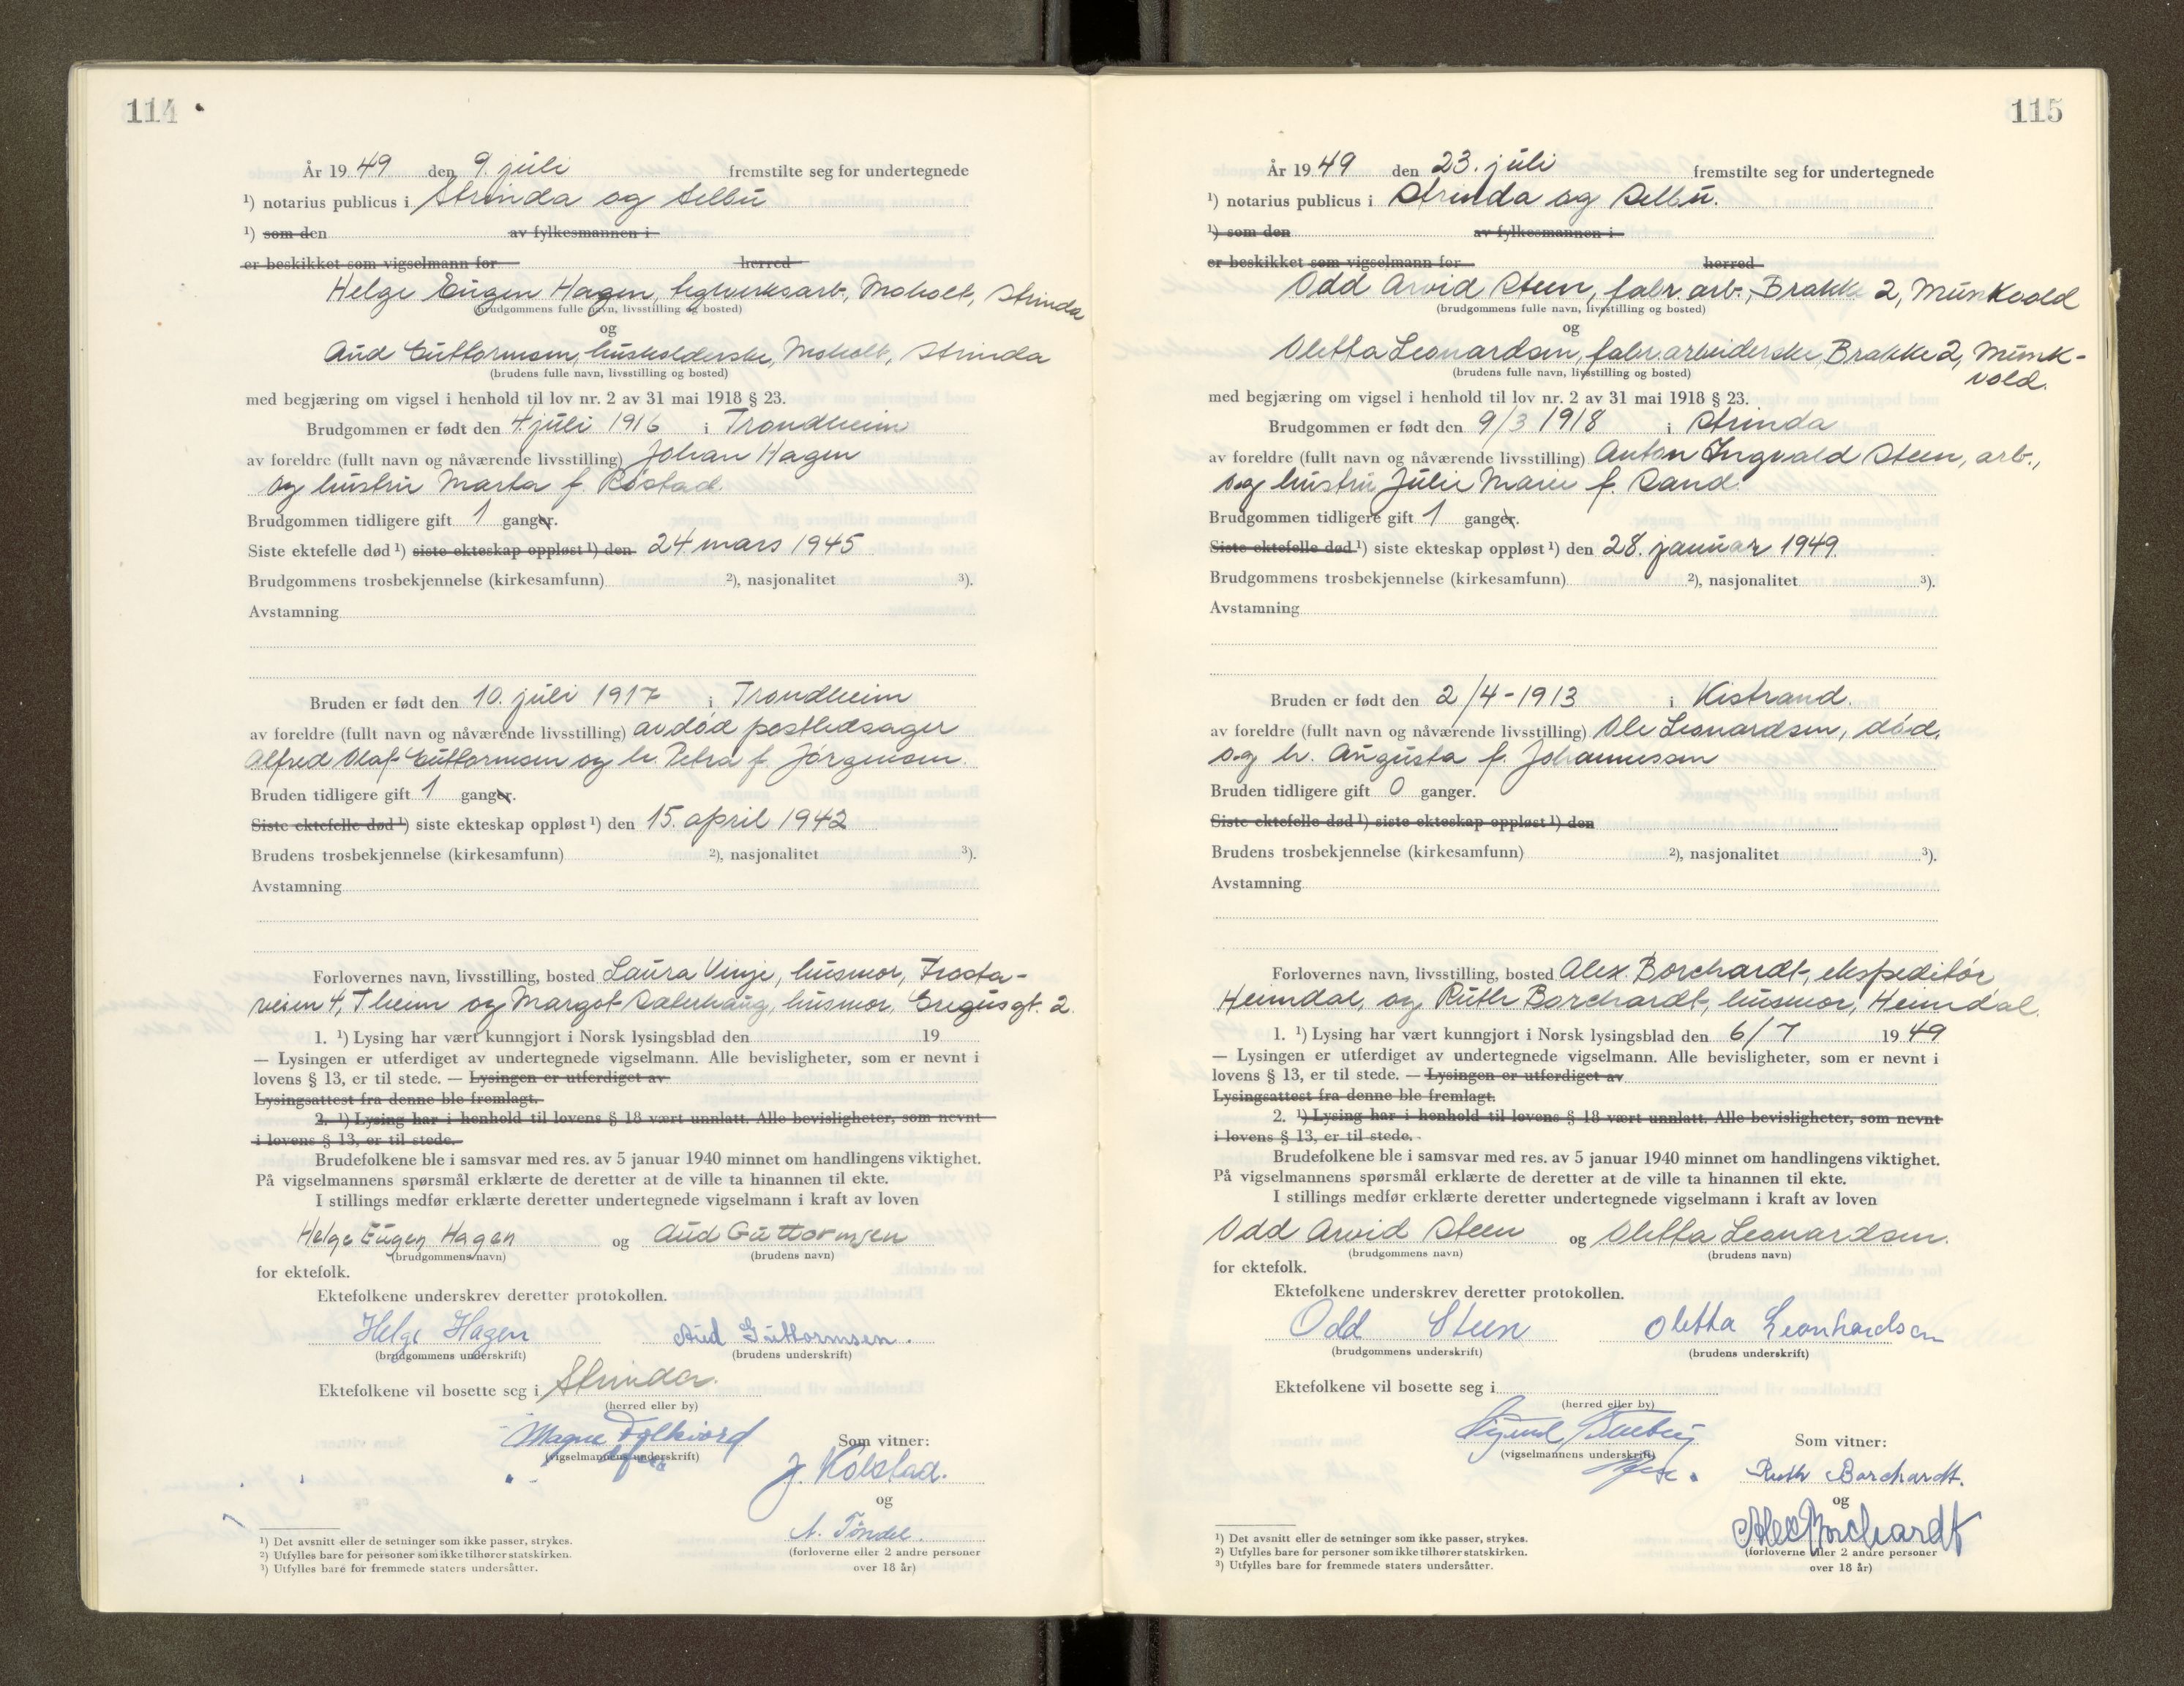 114
År 19 49 den 9. juli fremstilte seg for undertegnede
¹) notarius publicus i Strinda og Selbu
¹) som den av fylkesmannen i
er beskikket som vigselmann for herred
Helge Eugen Hagen, teglverksarb., Moholt, Strinda
(brudgommens fulle navn, livsstilling og bosted)
og
Aud Guttormsen, husholderske, Moholt, Strinda
(brudens fulle navn, livsstilling og bosted)
med begjæring om vigsel i henhold til lov nr. 2 av 31 mai 1918 § 23.
Brudgommen er født den 4. juli 1916 i Trondheim
av foreldre (fullt navn og nåværende livsstilling) Johan Hagen
og hustru Marta f. Röstad
Brudgommen tidligere gift 1 ganger.
Siste ektefelle død ¹) siste ekteskap oppløst ¹) den 24 mars 1945
Brudgommens trosbekjennelse (kirkesamfunn) ²), nasjonalitet ³).
Avstamning
Bruden er født den 10. juli 1917 i Trondheim
av foreldre (fullt navn og nåværende livsstilling) avdöd postledsager
Alfred Olaf Guttormsen og h. Petra f. Jörgensen.
Bruden tidligere gift 1 ganger.
Siste ektefelle død ¹) siste ekteskap oppløst ¹) den 15. april 1942
Brudens trosbekjennelse (kirkesamfunn) ²), nasjonalitet ³).
Avstamning
Forlovernes navn, livsstilling, bosted Laura Vinje, husmor, Frosta-
veien 4, T.heim og Margot husmor, Gregusgt. 2.
1. ¹) Lysing har vært kunngjort i Norsk lysingsblad den 19
— Lysingen er utferdiget av undertegnede vigselmann. Alle bevisligheter, som er nevnt i
lovens § 13, er til stede. — Lysingen er utferdiget av
Lysingsattest fra denne ble fremlagt.
2. ¹) Lysing har i henhold til lovens § 18 vært unnlatt. Alle bevisligheter, som nevnt
i lovens § 13, er til stede.
Brudefolkene ble i samsvar med res. av 5 januar 1940 minnet om handlingens viktighet.
På vigselmannens spørsmål erklærte de deretter at de ville ta hinannen til ekte.
I stillings medfør erklærte deretter undertegnede vigselmann i kraft av loven
Helge Eugen Hagen og Aud Guttormsen
(brudgommens navn) (brudens navn)
for ektefolk.
Ektefolkene underskrev deretter protokollen.
Helge Hagen Aud Guttormsen.
(brudgommens underskrift) (brudens underskrift)
Ektefolkene vil bosette seg i Strinda.
(herred eller by)
Magne Som vitner:
(vigselmannens underskrift)
J. Kolstad.
og
A. Töndel.
(forloverne eller 2 andre personer
over 18 år)
¹) Det avsnitt eller de setninger som ikke passer, strykes.
²) Utfylles bare for personer som ikke tilhører statskirken.
³) Utfylles bare for fremmede staters undersåtter.
115
År 19 49 den 23. juli fremstilte seg for undertegnede
¹) notarius publicus i Strinda og Selbu.
¹) som den av fylkesmannen i
er beskikket som vigselmann for herred
Odd Arvid Steen, fabr. arb., Brakke 2, Munkvold
(brudgommens fulle navn, livsstilling og bosted)
og
Oletta Leonardsen, fabr.arbeiderske, Brakke 2, Munk-
vold.
(brudens fulle navn, livsstilling og bosted)
med begjæring om vigsel i henhold til lov nr. 2 av 31 mai 1918 § 23.
Brudgommen er født den 9/3 1918 i Strinda
av foreldre (fullt navn og nåværende livsstilling) Anton Ingvald Steen, arb.,
og hustru Julie Marie f. Sand.
Brudgommen tidligere gift 1 ganger.
Siste ektefelle død ¹) siste ekteskap oppløst ¹) den 28. januar 1949
Brudgommens trosbekjennelse (kirkesamfunn) ²), nasjonalitet ³).
Avstamning
Bruden er født den 2/4-1913 i Kistrand.
av foreldre (fullt navn og nåværende livsstilling) Ole Leonardsen, död,
og h. Augusta f. Johannessen
Bruden tidligere gift 0 ganger.
Siste ektefelle død ¹) siste ekteskap oppløst ¹) den
Brudens trosbekjennelse (kirkesamfunn) ²), nasjonalitet ³).
Avstamning
Forlovernes navn, livsstilling, bosted Alex. Borchardt, ekspeditör
Heimdal, og Ruth Borchardt, husmor, Heimdal.
1. ¹) Lysing har vært kunngjort i Norsk lysingsblad den 6/7 19 49
— Lysingen er utferdiget av undertegnede vigselmann. Alle bevisligheter, som er nevnt i
lovens § 13, er til stede. — Lysingen er utferdiget av
Lysingsattest fra denne ble fremlagt.
2. ¹) Lysing har i henhold til lovens § 18 vært unnlatt. Alle bevisligheter, som nevnt
i lovens § 13, er til stede.
Brudefolkene ble i samsvar med res. av 5 januar 1940 minnet om handlingens viktighet.
På vigselmannens spørsmål erklærte de deretter at de ville ta hinannen til ekte.
I stillings medfør erklærte deretter undertegnede vigselmann i kraft av loven
Odd Arvid Steen og Oletta Leonardsen.
(brudgommens navn) (brudens navn)
for ektefolk.
Ektefolkene underskrev deretter protokollen.
Odd Steen Oletta Leonhardsen
(brudgommens underskrift) (brudens underskrift)
Ektefolkene vil bosette seg i
(herred eller by)
Som vitner:
(vigselmannens underskrift)
Ruth Borchardt.
og
Alex Borchardt
(forloverne eller 2 andre personer
over 18 år)
¹) Det avsnitt eller de setninger som ikke passer, strykes.
²) Utfylles bare for personer som ikke tilhører statskirken.
³) Utfylles bare for fremmede staters undersåtter.